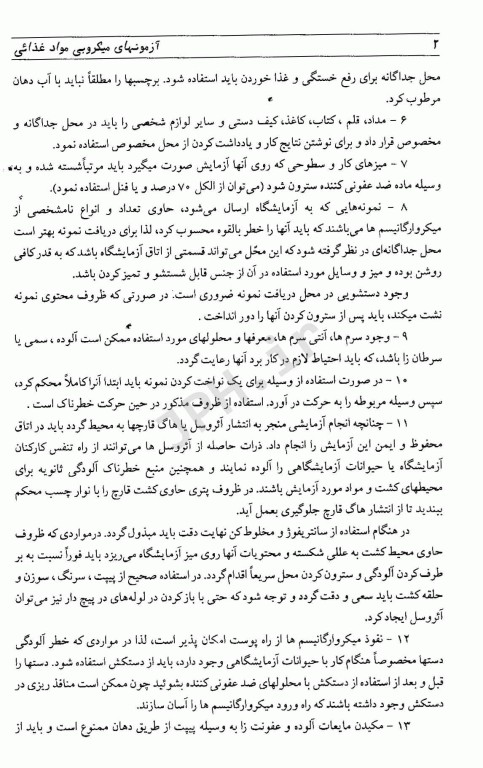 ۲ آزمونهای میکروبی مواد غذائی
محل جداگانه برای رفع خستگی و غذا خوردن باید استفاده شود. برچسبها را مطلقاً نباید با آب دهان
مرطوب کرد.
۶ - مداد، قلم ، کتاب، کاغذ، کیف دستی و سایر لوازم شخصی را باید در محل جداگانه و
مخصوص قرار داد و برای نوشتن نتایج کار و یادداشت کردن از محل مخصوص استفاده نمود.
۷ - میزهای کار و سطوحی که روی آنها آزمایش صورت میگیرد باید مرتباًشسته شده و به
وسیله ماده ضد عفونی کننده سترون شود (می‌توان از الکل ۷۰ درصد و یا فنل استفاده نمود).
۸ - نمونه‌هایی که به آزمایشگاه ارسال می‌شود، حاوی تعداد و انواع نامشخصی از
میکروارگانیسم ها می‌باشند که باید آنها را خطر بالقوه محسوب کرد، لذا برای دریافت نمونه بهتر است
محل جداگانه‌ای در نظر گرفته شود که این محل می‌تواند قسمتی از اتاق آزمایشگاه باشد که به قدر کافی
روشن بوده و میز و وسایل مورد استفاده در آن از جنس قابل شستشو و تمیز کردن باشد.
وجود دستشویی در محل دریافت نمونه ضروری است. در صورتی که ظروف محتوی نمونه
نشت میکند، باید پس از سترون کردن آنها را دور انداخت .
۹ - وجود سرم ها، آنتی سرم ها، معرفها و محلولهای مورد استفاده ممکن است آلوده ، سمی یا
سرطان زا باشد، که باید احتیاط لازم در کار برد آنها رعایت گردد.
۱۰ - در صورت استفاده از وسیله برای یک نواخت کردن نمونه باید ابتدا آنرا کاملاً محکم کرد،
سپس وسیله مربوطه را به حرکت در آورد. استفاده از ظروف مذکور در حین حرکت خطرناک است .
۱۱ - چنانچه انجام آزمایشی منجر به انتشار آئروسل یا هاگ قارچها به محیط گردد باید در اتاق
محفوظ و ایمن این آزمایش را انجام داد. ذرات حاصله از آئروسل ها می‌توانند از راه تنفس کارکنان
آزمایشگاه یا حیوانات آزمایشگاهی را آلوده نمایند و همچنین منبع خطرناک آلودگی ثانویه برای
محیطهای کشت و مواد مورد آزمایش باشند. در ظروف پتری حاوی کشت قارچ را با نوار چسب محکم
ببندید تا از انتشار هاگ قارچ جلوگیری بعمل آید.
در هنگام استفاده از سانتریفوژ و مخلوط کن نهایت دقت باید مبذول گردد. در مواردی که ظروف
حاوی محیط کشت به عللی شکسته و محتویات آنها روی میز آزمایشگاه می‌ریزد باید فوراً نسبت به بر
طرف کردن آلودگی و سترون کردن محل سریعاً اقدام گردد. در استفاده صحیح از پیپت ، سرنگ ، سوزن و
حلقه کشت باید سعی و دقت گردد و توجه شود که حتی با باز کردن در لوله‌های در پیچ دار نیز می‌توان
آئروسل ایجاد کرد.
۱۲ - نفوذ میکروارگانیسم ها از راه پوست امکان پذیر است، لذا در مواردی که خطر آلودگی
دستها مخصوصاً هنگام کار با حیوانات آزمایشگاهی وجود دارد، باید از دستکش استفاده شود. دستها را
قبل و بعد از استفاده از دستکش با محلولهای ضد عفونی کننده بشوئید چون ممکن است منافذ ریزی در
دستکش وجود داشته باشند که راه ورود میکروارگانیسم ها را آسان سازند.
۱۳ - مکیدن مایعات آلوده و عفونت زا به وسیله پیپت از طریق دهان ممنوع است و باید از